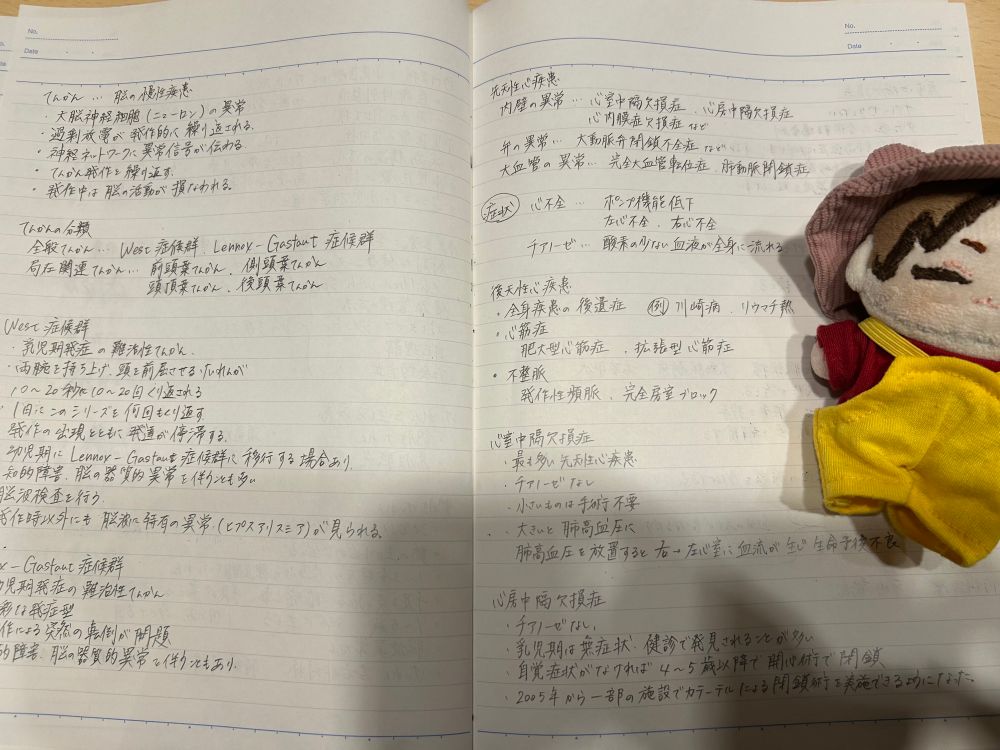 No.
Date
てんかん… 脳の慢性疾患
・大脳神経細胞(ニューロン)の異常
・過剰放電が発作的に繰り返される.
・神経ネットワークに異常信号が伝わる
・てんかん発作を繰り返す.
・発作中は脳の活動が損なわれる.
てんかんの分類
全般てんかん… West 症候群. Lennox-Gastaut 症候群
局在関連てんかん… 前頭葉てんかん、側頭葉てんかん
頭頂葉てんかん、後頭葉てんかん
West 症候群
・乳児期発症の難治性てんかん.
・両腕を持ち上げ、頭を前屈させるけいれんが
10〜20秒に10〜20回くり返される
1日にこのシリーズを何回もくり返す.
発作の出現とともに発達が停滞する.
幼児期に Lennox-Gastaut 症候群に移行する場合あり.
知的障害、脳の器質的異常を伴うことも多い
脳波検査を行う.
発作時以外にも脳波に特有の異常(ヒプスアリスミア)が見られる.
x-Gastaut 症候群
幼児期発症の難治性てんかん
彩な発症型
作による突然の転倒が問題
的障害、脳の器質的異常を伴うこともあり.
No.
Date
先天性心疾患
内壁の異常… 心室中隔欠損症、心房中隔欠損症
心内膜症欠損症など
弁の異常… 大動脈弁閉鎖不全症など
大血管の異常… 完全大血管転位症、肺動脈閉鎖症
症状 心不全… ポンプ機能低下
左心不全、右心不全
チアノーゼ… 酸素の少ない血液が全身に流れる
後天性心疾患
・全身疾患の後遺症 例 川崎病、リウマチ熱
・心筋症
肥大型心筋症、拡張型心筋症
・不整脈
発作性頻脈、完全房室ブロック
心室中隔欠損症
・最も多い先天性心疾患
・チアノーゼなし
・小さいものは手術不要
・大きいと肺高血圧に
肺高血圧を放置すると右→左心室に血流が生じ生命予後不良
心房中隔欠損症
・チアノーゼなし.
・乳児期は無症状、健診で発見されることが多い
・自覚症状がなければ4〜5歳以降で開心術で閉鎖
・2005年から一部の施設でカテーテルによる閉鎖術を実施できるようになった.